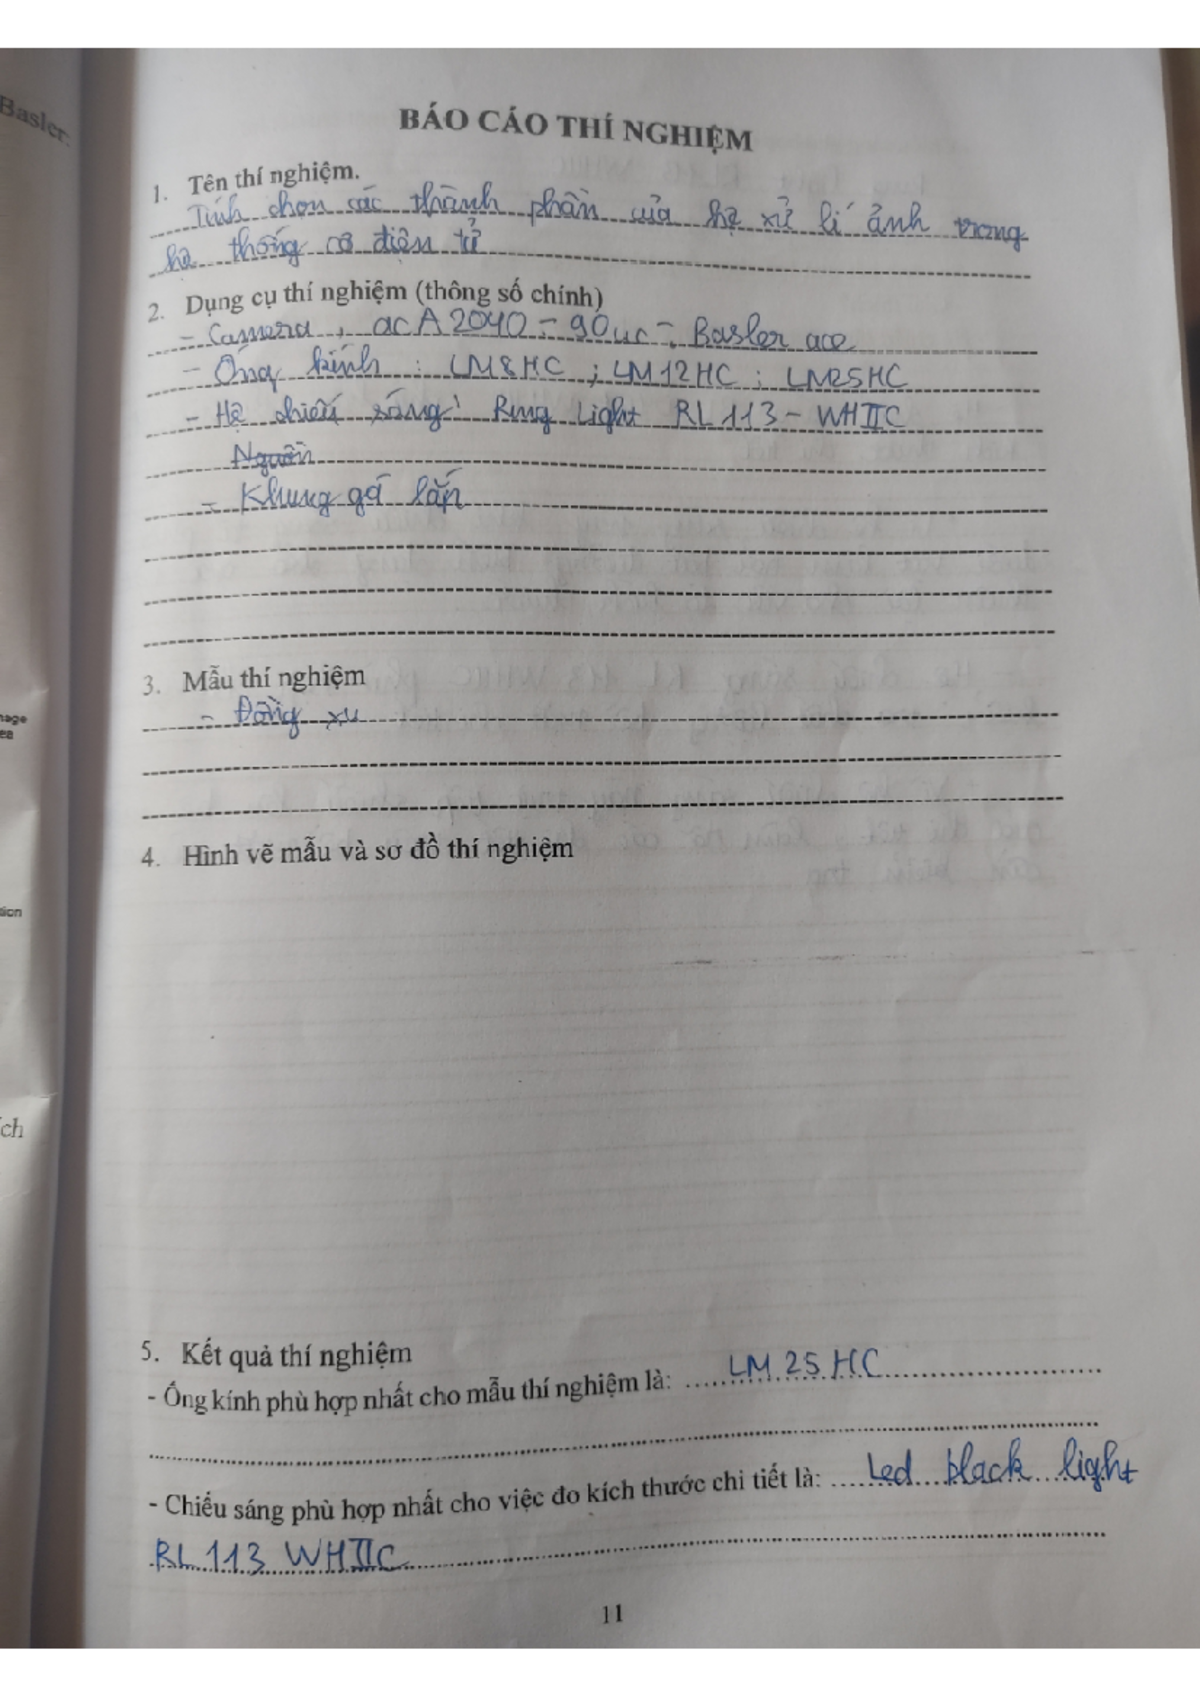 Basler.
BÁO CÁO THÍ NGHIỆM
1. Tên thí nghiệm.
Tính chọn các thành phần của hệ xử lí ảnh trong
hệ thống cơ điện tử
2. Dụng cụ thí nghiệm (thông số chính)
- Camera, acA2040-90uc-, Basler ace
- Ống kính : LM8HC ; LM12HC ; LM25HC
- Hệ chiếu sáng: Ring Light RL113-WHIIC
Nguồn
- Khung gá lắp
3. Mẫu thí nghiệm
- Đồng xu
4. Hình vẽ mẫu và sơ đồ thí nghiệm
ch
5. Kết quả thí nghiệm
- Ống kính phù hợp nhất cho mẫu thí nghiệm là: LM 25 HC
- Chiếu sáng phù hợp nhất cho việc đo kích thước chi tiết là: Led black light
RL 113 WHIIC
11